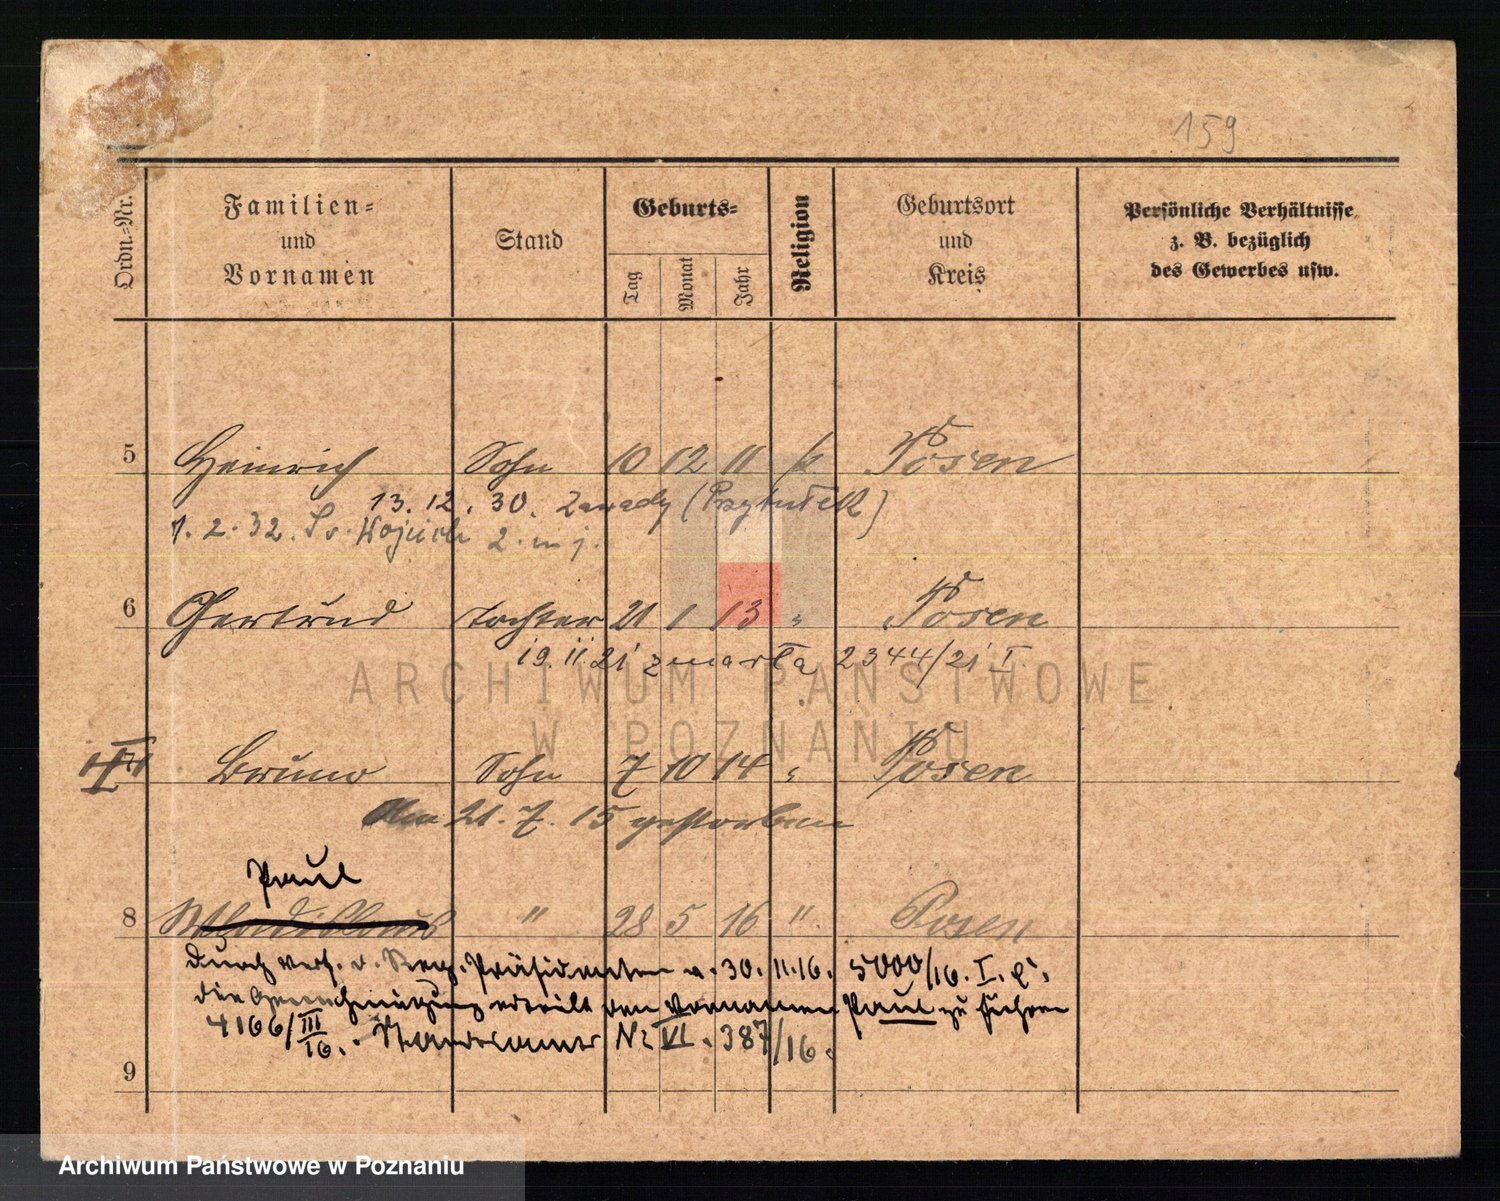 159
Ordn.-Nr.
Familien-
und
Vornamen
Stand
Geburts-
Tag
Monat
Jahr
Religion
Geburtsort
und
Kreis
Persönliche Verhältnisse
z. B. bezüglich
des Gewerbes usw.
5 Heinrich Sohn 10 12 11 k Posen
13. 12. 30. Zawady (Przytułek)
1. 2. 32. Św. Wojciech 2. m j.
6 Gertrud Tochter 21 1 13 " Posen
19. 11 21 zmarła 2344/21 I
ARCHIWUM PAŃSTWOWE
W POZNANIU
Bruno Sohn 7 10 14 " Posen
Am 21. 7. 15 gestorben
Paul
8 " 28 5 16 " Posen
durch Verf. d. Reg. Präsidenten v. 30. 11. 16. 5000/16. I. C.
die Genehmigung erteilt den Vornamen Paul zu führen
4166/III 16. Standesamt Nr VI. 387/16.
9
Archiwum Państwowe w Poznaniu